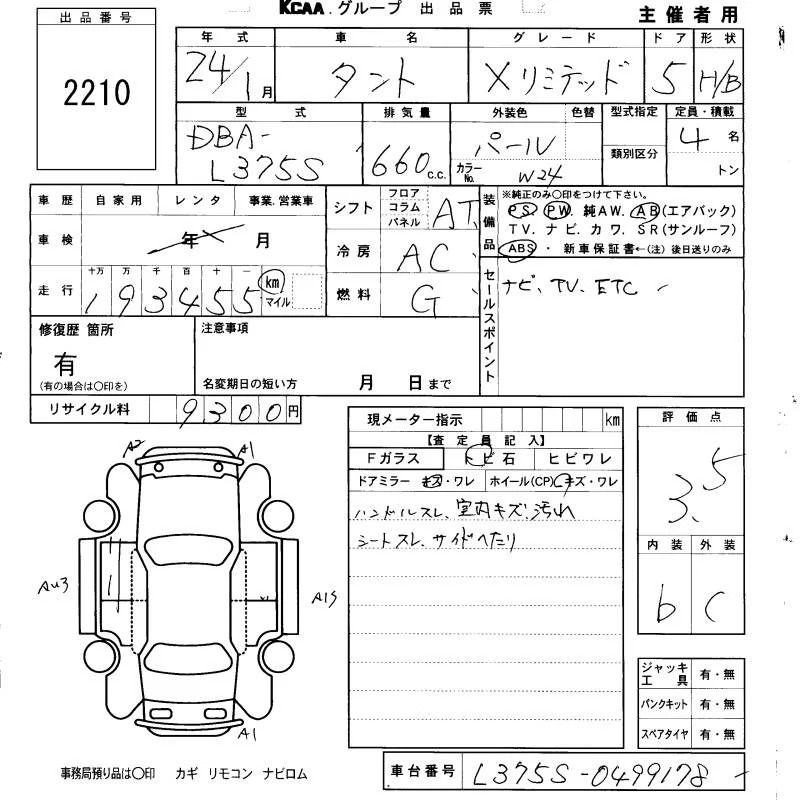 KCAA.グループ 出品票
主催者用
出品番号
2210
年式 車名 グレード ドア 形状
24/1月 タント Xリミテッド 5 H/B
型式 排気量 外装色 色替 型式指定 定員・積載
DBA-
L375S 660c.c. パール 類別区分 4名
カラーNo. W24 トン
車歴 自家用 レンタ 事業.営業車
車検 年 月
走行 十万 万 千 百 十 一
193455 km マイル
シフト フロア コラム パネル AT
冷房 AC
燃料 G
装備品
※純正のみ○印をつけて下さい。
PS. PW. 純AW. AB(エアバック)
TV. ナビ. カワ. SR(サンルーフ)
ABS ・ 新車保証書←(注) 後日送りのみ
セールスポイント
ナビ、TV、ETC
修復歴 箇所
有
(有の場合は○印を)
注意事項
名変期日の短い方 月 日まで
リサイクル料 9300円
現メーター指示 km
【査定員記入】
Fガラス トビ石 ヒビワレ
ドアミラー キズ・ワレ ホイール(CP) キズ・ワレ
ハンドルスレ、室内キズ、汚れ
シートスレ、サイドへたり
評価点
3.5
内装 外装
b C
A2 A1
AU3
A1S
A1
ジャッキ工具 有・無
パンクキット 有・無
スペアタイヤ 有・無
事務局預り品は○印 カギ リモコン ナビロム
車台番号 L375S-0499178